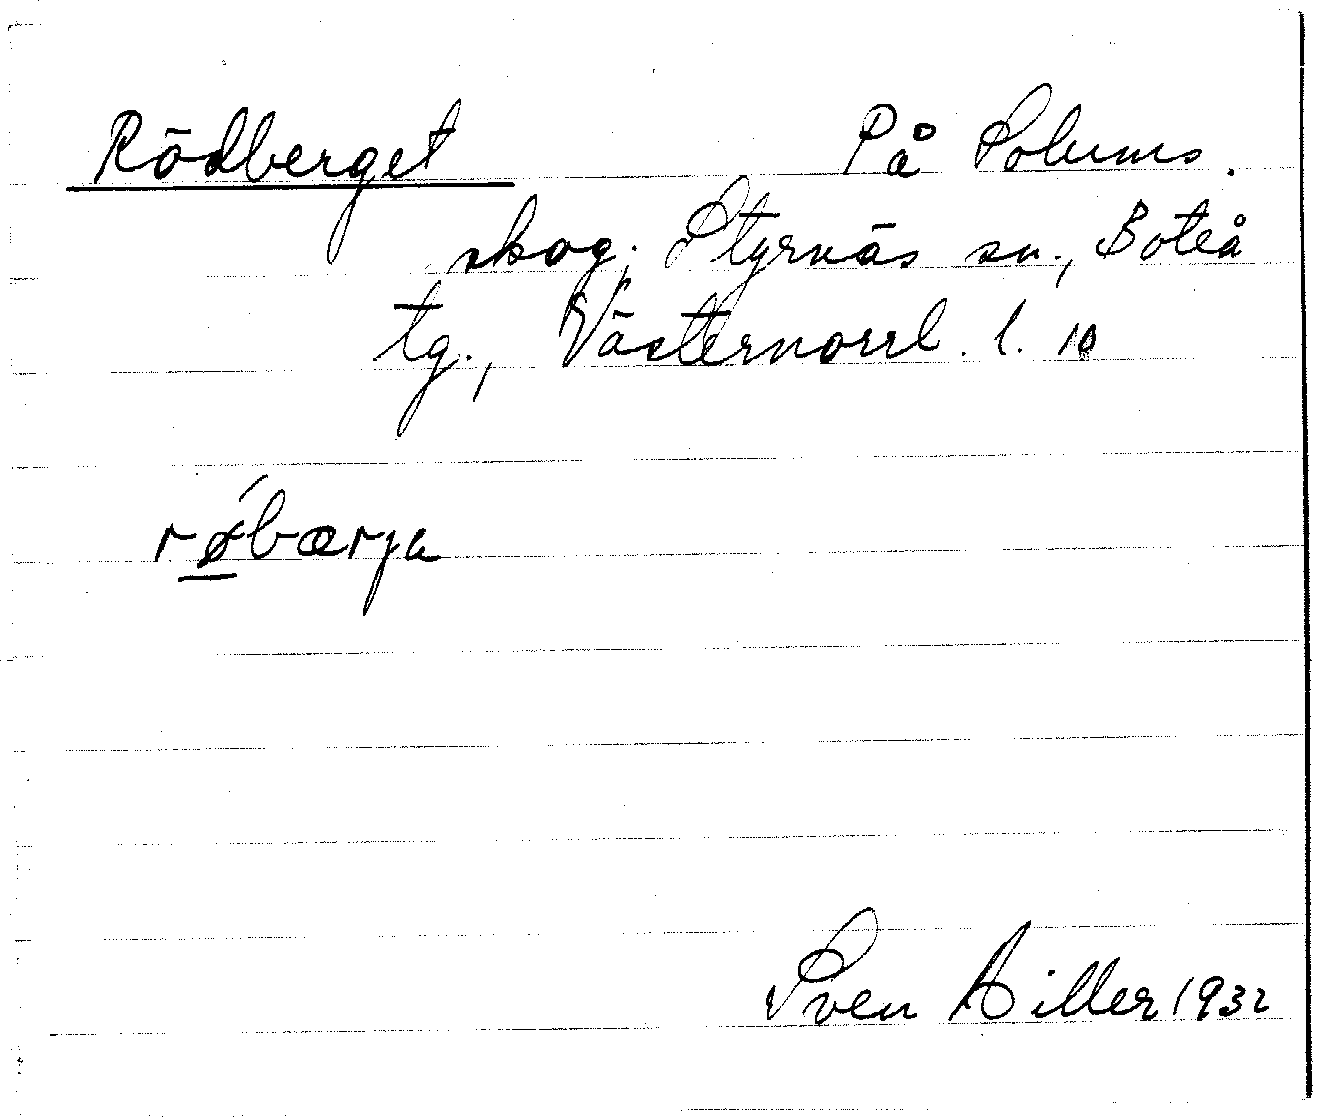 Rödberget På Solums
skog; Styrnäs sn., Boteå
tg., Västernorrl. l. 10
rǿ̲bærja
Sven Hiller 1932